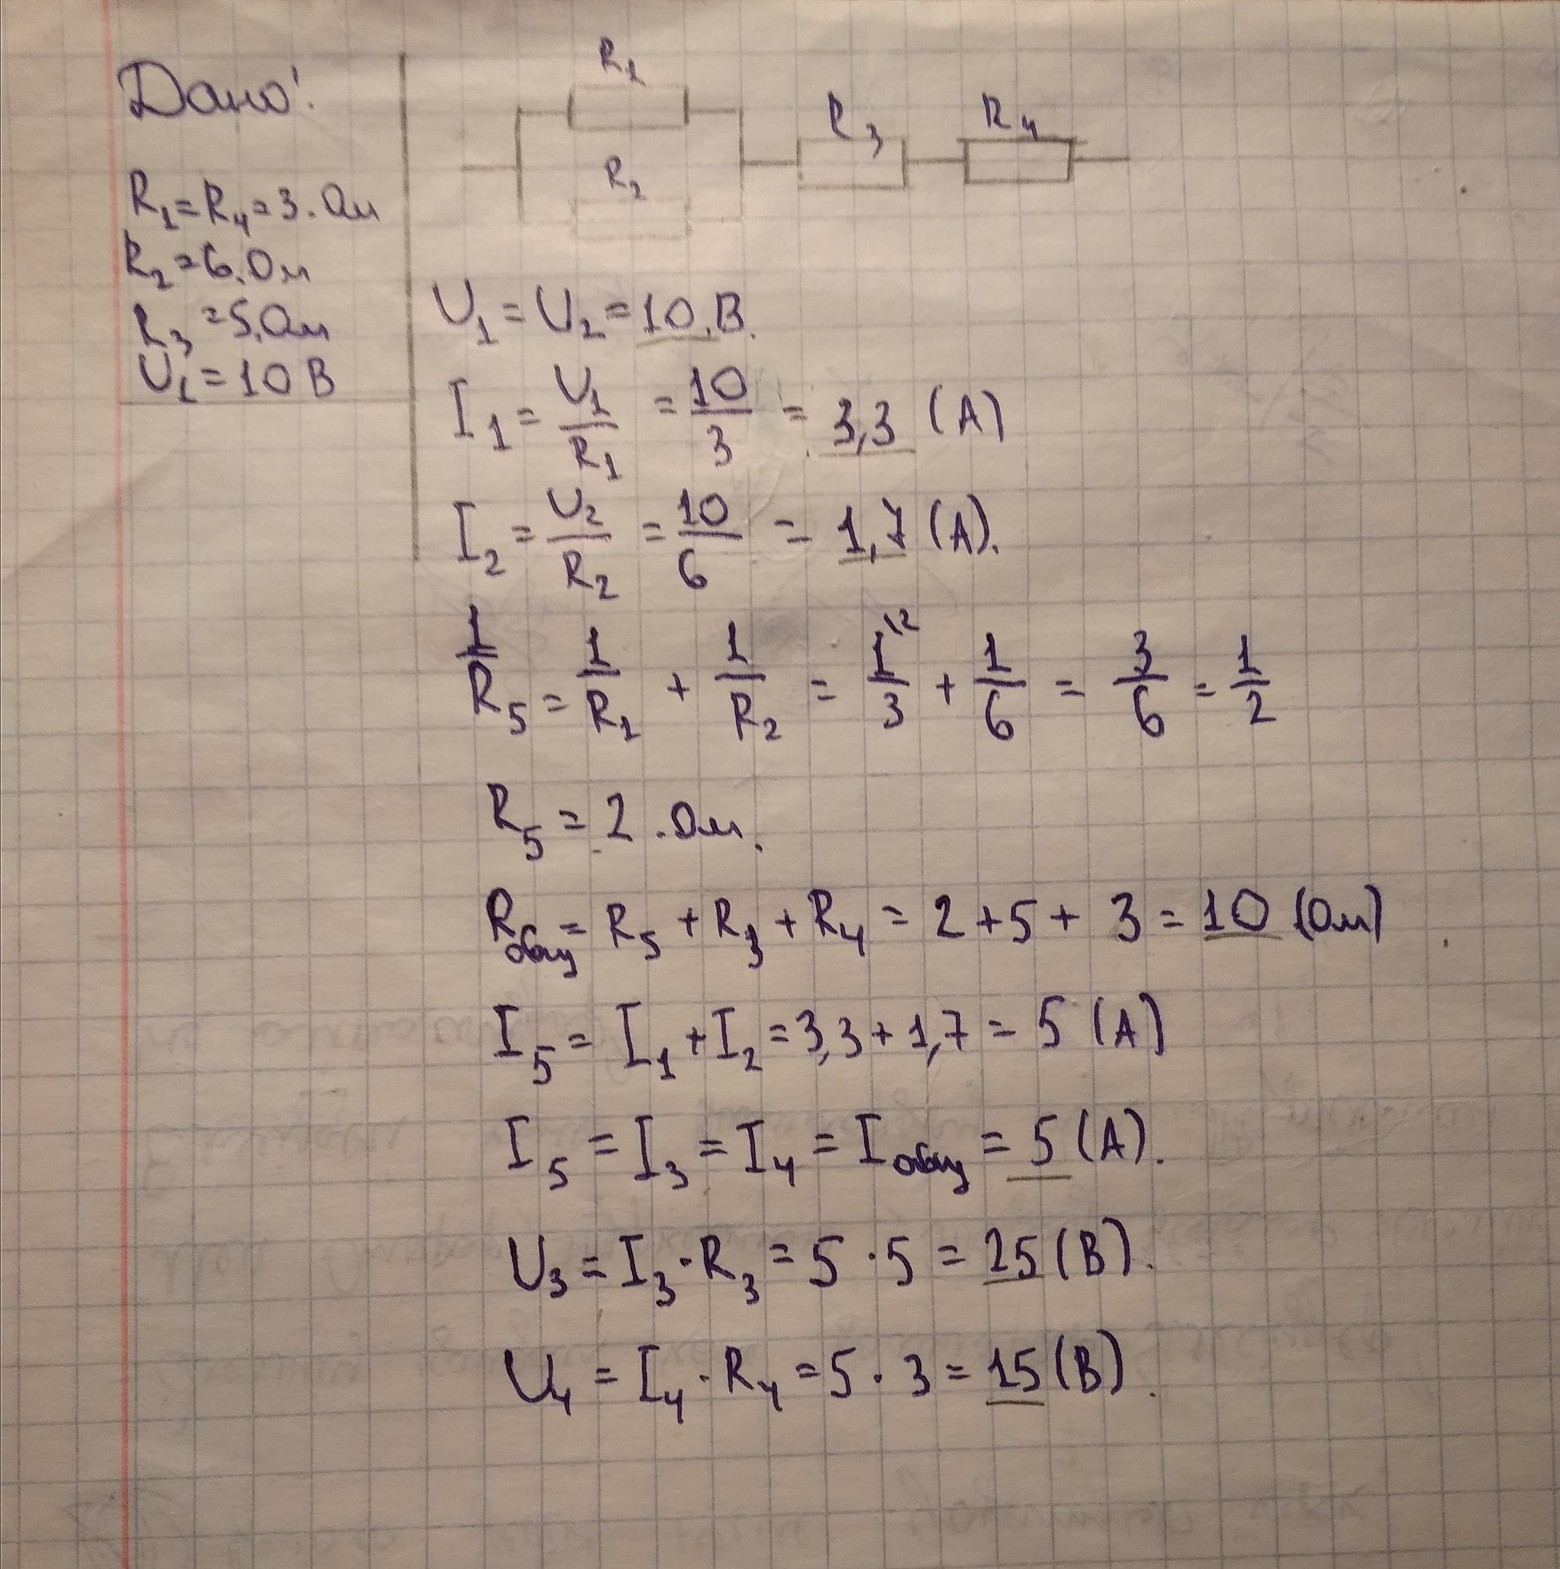 Дано:
R₁
R₂
R₃
R₄
R₁=R₄=3.Ом
R₂=6.Ом
R₃=5.Ом
U₁=10В
U₁=U₂=10.В.
I₁=U₁/R₁=10/3=3,3 (А)
I₂=U₂/R₂=10/6=1,7 (А).
1/R₅=1/R₁+1/R₂=1\²/3+1/6=3/6=1/2
R₅=2.Ом.
Rобщ=R₅+R₃+R₄=2+5+3=10 (Ом)
I₅=I₁+I₂=3,3+1,7=5 (А)
I₅=I₃=I₄=Iобщ=5 (А).
U₃=I₃·R₃=5·5=25 (В).
U₄=I₄·R₄=5·3=15 (В).